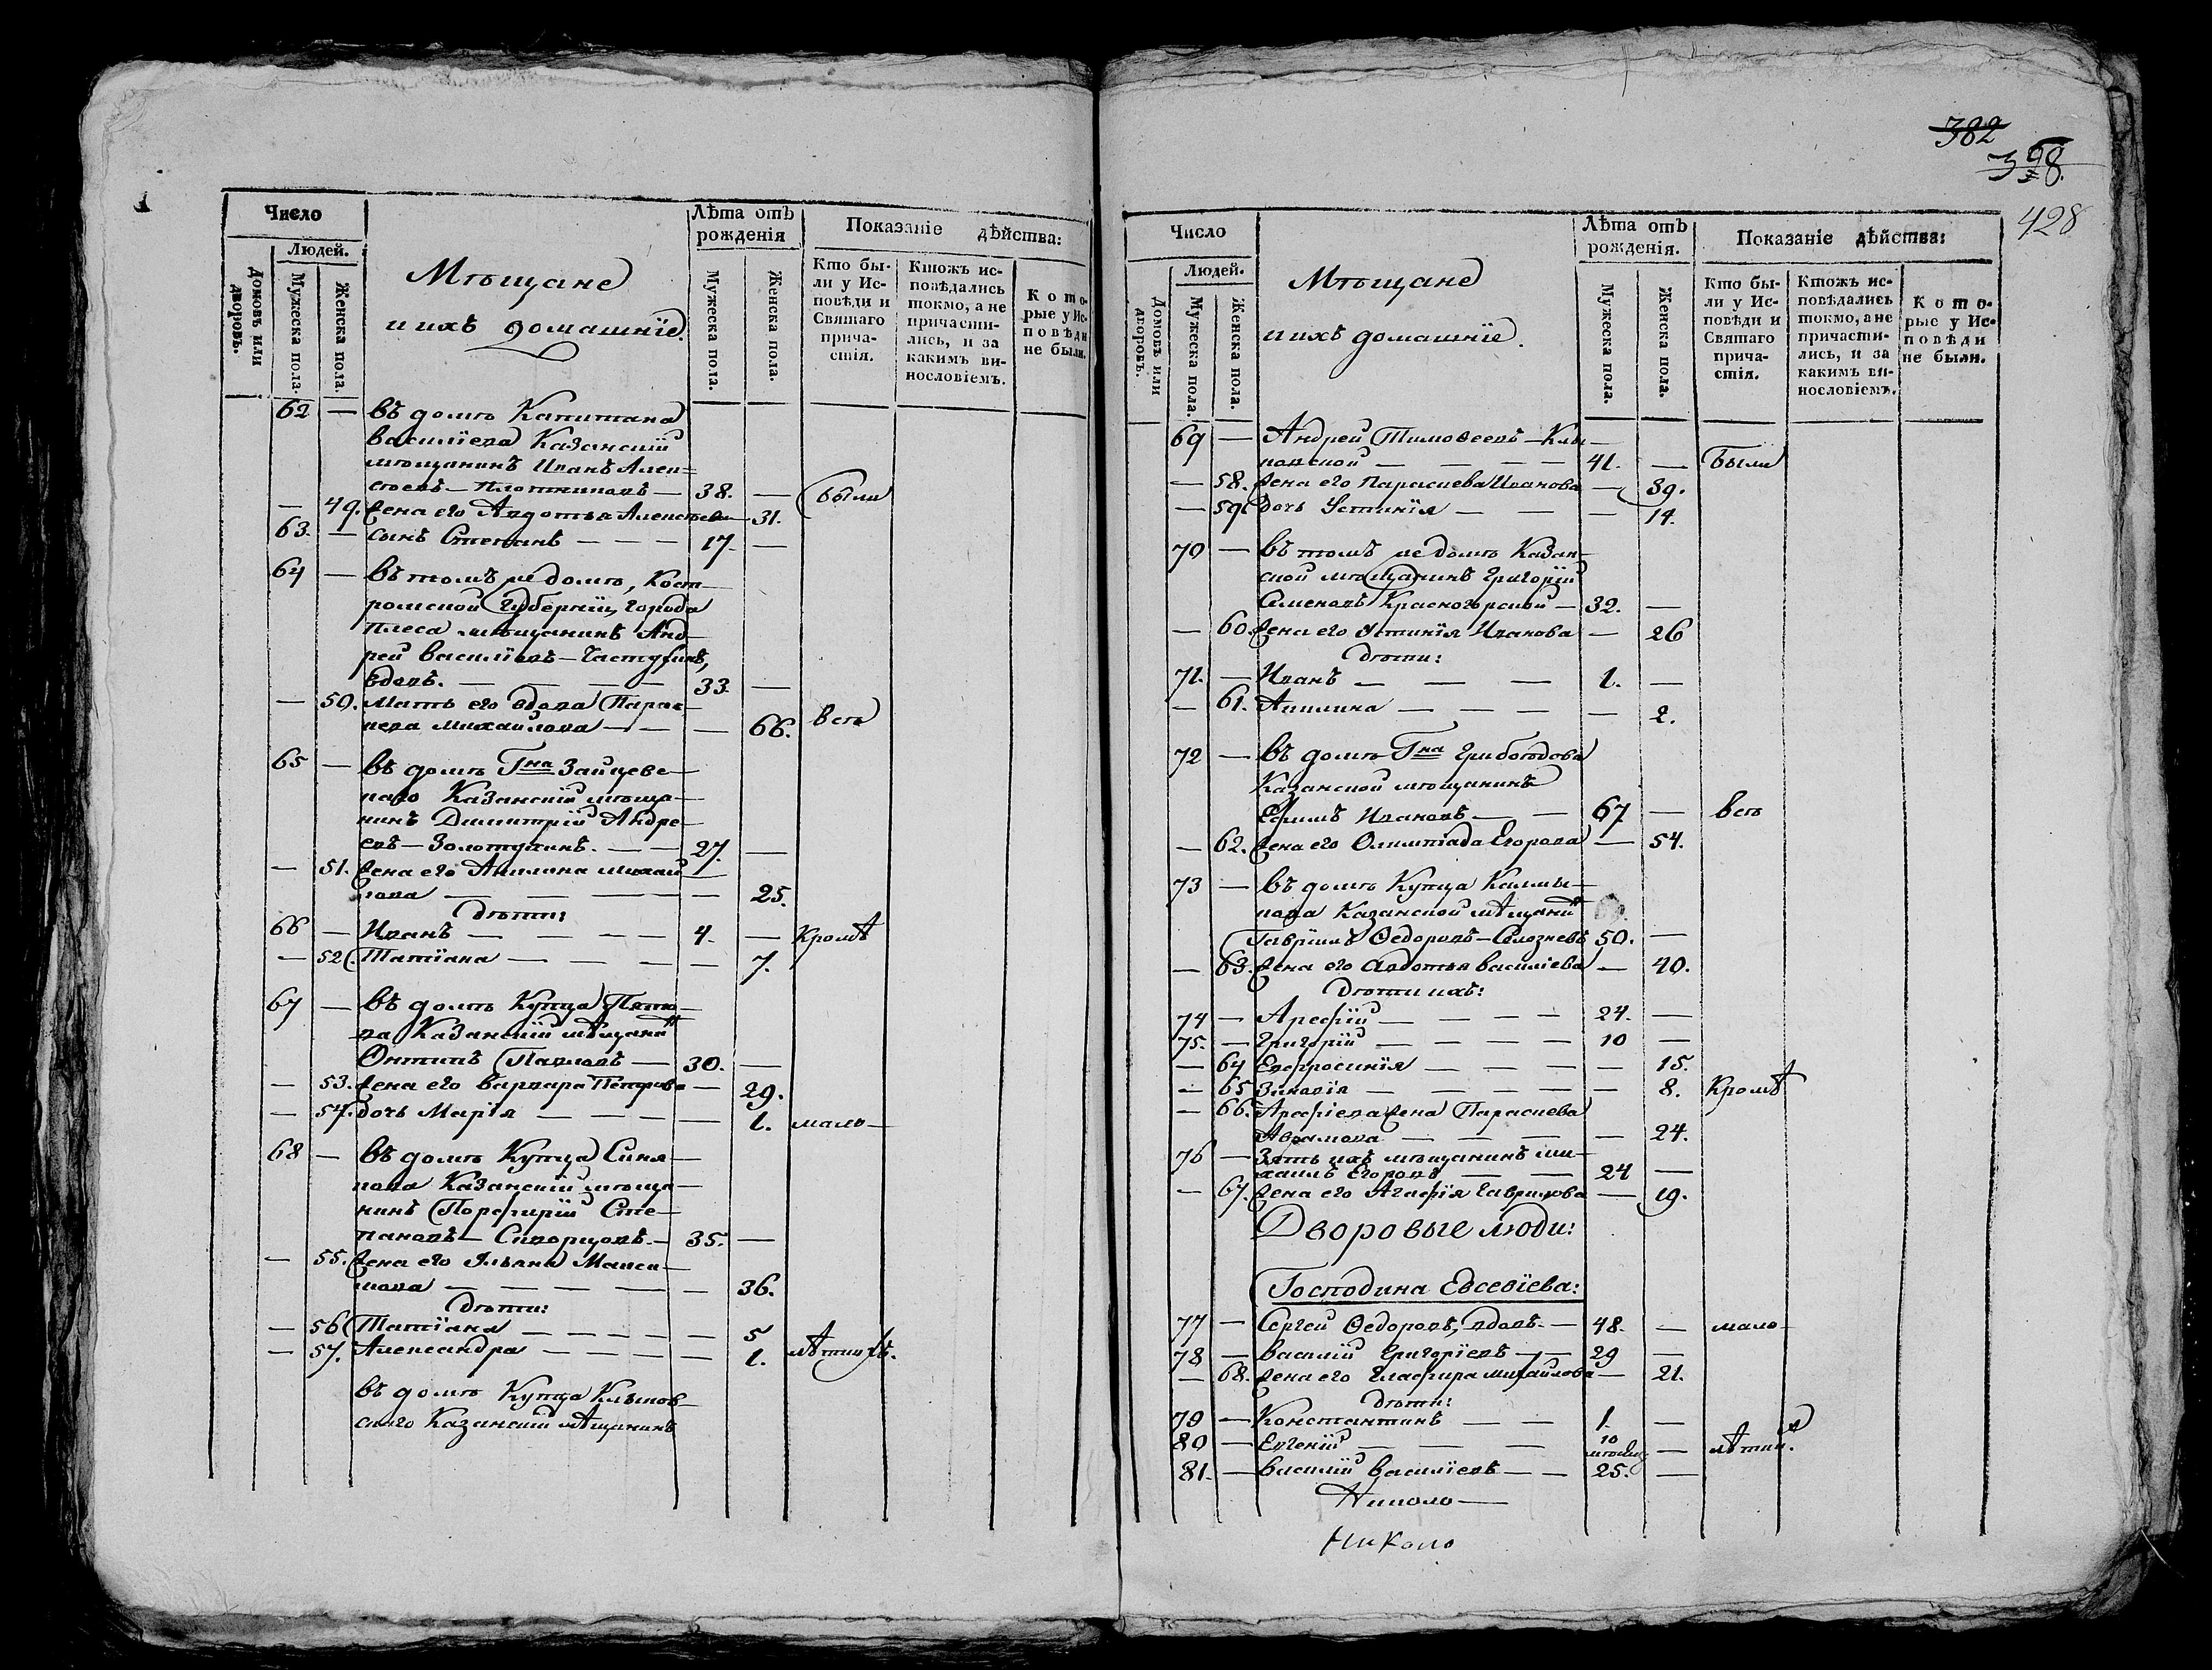 Число
Людей.
Домовъ или дворовъ.
Мужеска пола.
Женска пола.
Мѣщане
и ихъ домашніе.
Лѣта отъ
рожденія
Мужеска пола.
Женска пола.
Показаніе дѣйства:
Кто бы-
ли у Ис-
повѣди и
Святаго
прича-
стія.
Ктожъ ис-
повѣдались
токмо, а не
причасти-
лись, и за
какимъ ви-
нословіемъ.
Кото-
рые у Ис-
повѣди
не были.
62 — въ домѣ Капитана
Василіева Казанскій
мѣщанинъ Иванъ Алек-
сѣевъ — Плотниковъ — 38. — были
— 49. жена его Авдотья Алексѣева — 31.
63. — сынъ Степанъ — — — 17. —
64 — Въ томъ же домѣ, Кост-
ромской Губерніи, города
Плеса мѣщанинъ Анд-
рей Василіевъ —
вдовъ. — — — — 33. —
— 50. Мать его вдова Парас-
кева Михайлова — — — 66. всѣ
65 — въ домѣ Гна Зайцевс-
каго Казанскій мѣща-
нинъ Димитрій Андре-
евъ — Золотухинъ. — — 27. —
— 51. жена его Акилина Михай-
лова — — — — — 25.
Дѣти:
66 — Иванъ — — — — 4. — Кромѣ
— 52. Татіана — — — — — 7.
67 — въ домѣ Купца
Казанскій мѣщанинъ
Онтипъ Павловъ — 30. —
— 53. жена его Варвара Петрова — 29.
— 54. дочь Марія — — — — 1. мало-
68 — въ домѣ Купца Синя-
кова Казанскій мѣща-
нинъ Порфирій Сте-
пановъ — Скворцовъ. — 35. —
— 55. жена его Ульяна Макси-
мова — — — — — — 36.
Дѣти:
— 56 Татіана — — — — — — 5
— 57. Александра — — — — — 1. лѣтнихъ.
въ домѣ Купца Клыков-
скаго Казанскій мѣщанинъ
382
398.
428
Число
Людей.
Домовъ или дворовъ.
Мужеска пола.
Женска пола.
Мѣщане
и ихъ домашніе.
Лѣта отъ
рожденія.
Мужеска пола.
Женска пола.
Показаніе дѣйства:
Кто бы-
ли у Ис-
повѣди и
Святаго
прича-
стія.
Ктожъ ис-
повѣдались
токмо, а не
причасти-
лись, и за
какимъ ви-
нословіемъ.
Кото-
рые у Ис-
повѣди
не были.
69 — Андрей Тимовеевъ — Клы-
ковской — — — — 41. — были
— 58. жена его Параскева Иванова — 39.
— 59. дочь Устинія — — — 14.
70 — въ томъ же домѣ Казан-
ской мѣщанинъ Григорій
Семеновъ Красногорской — 32. —
— 60. жена его Устинія Иванова — 26
дѣти:
71. — Иванъ — — — 1. —
— 61. Акилина — — — — 2.
72 — въ домѣ Гна Грибоѣдова
Казанской мѣщанинъ
Ефимъ Ивановъ — — 67 — всѣ
— 62. жена его Олимпіада Егорова — 54.
73 — въ домѣ Купца Калмы-
кова Казанской мѣщанинъ
Гавріилъ Ѳедоровъ — Селезневъ 50. —
— 63. жена его Авдотья Василіева — 40.
Дѣти ихъ:
74 — Арефій — — — — 24. —
75. — Григорій — — — — 10 —
— 64 Евфросинія — — — — 15.
— 65 Зиновія — — — — — 8. Кромѣ
— 66. Арефіева жена Параскева
Аврамова — — — — 24.
76 — Зять ихъ мѣщанинъ Ми-
хаилъ Егоровъ — — 24 —
— 67. жена его Агафія Гаврилова — 19.
Дворовые люди:
Господина Евсевіева:
77 — Сергей Ѳедоровъ, вдовъ. — 48. — мало-
78 — Василій Григоріевъ — — 29 —
— 68. жена его Глафира Михайлова — 21.
дѣти:
79 — Константинъ — — 1. —
80 — Евгеній — — — 10 мѣсяц. — лѣтнихъ.
81. — Василій Василіевъ — — 25. —
Николо —
Николо